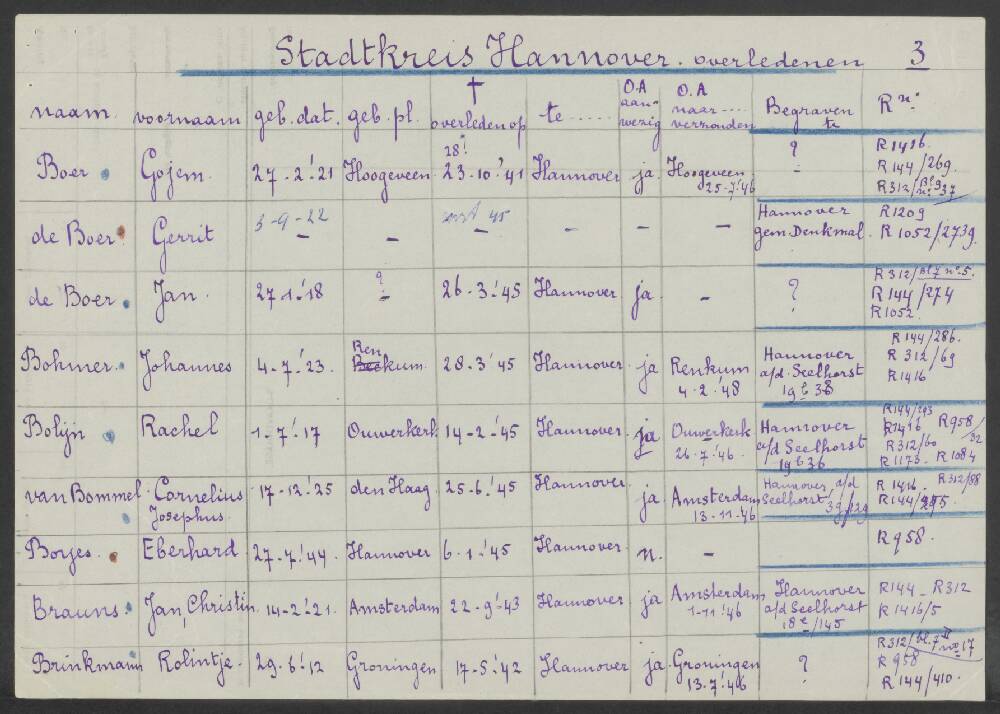 Stadtkreis Hannover. overledenen 3
naam. voornaam geb. dat. geb. pl. † overleden op te ...... O.A aan- wezig O.A. naar .... verzonden Begraven te R nr.
Boer Gojem. 27-2-'21 Hoogeveen 18! 23-10-'41 Hannover ja Hoogeveen 25-7-'46 ? R1416. R144/269. R312/Bl.9 no. 37
de Boer Gerrit 3-9-22 - - 45 - - - - Hannover gem. Denkmal. R1209 R1052/2739.
de Boer Jan. 27-1-'18 ? - 26-3-'45 Hannover ja - ? R312/Bl.7 no. 5. R144/274 R1052.
Bohmer. Johannes 4-7-'23. Renkum. 28-3-'45 Hannover ja Renkum 4-2-'48 Hannover a/d. Seelhorst 19 b 38 R144/286. R312/69 R1416
Bolijn Rachel 1-7-'17 Ouwerkerk 14-2-'45 Hannover ja Ouwerkerk 26-7-'46. Hannover a/d Seelhorst 19 b 36 R144/293 R1416 R958/32 R312/60 R1173. R1084
van Bommel. Cornelius Josephus. 17-12-'25 den Haag 25-6-'45 Hannover. ja Amsterdam 13-11-'46 Hannover a/d Seelhorst 3g/129 R1416. R312/88 R144/295.
Borjes. Eberhard 27-7-'44 Hannover 6-1-'45 Hannover n. - R958.
Brauns. Jan, Christin. 14-2-'21. Amsterdam 22-9-'43 Hannover ja Amsterdam 1-11-'46 Hannover a/d Seelhorst 18 e/145 R144 - R312 R1416/5
Brinkmann Rolintje. 29-6-'12 Groningen 17-5-'42 Hannover ja Groningen 13-7-'46 ? R312/bl. 7 II no 17 R958 R144/410.